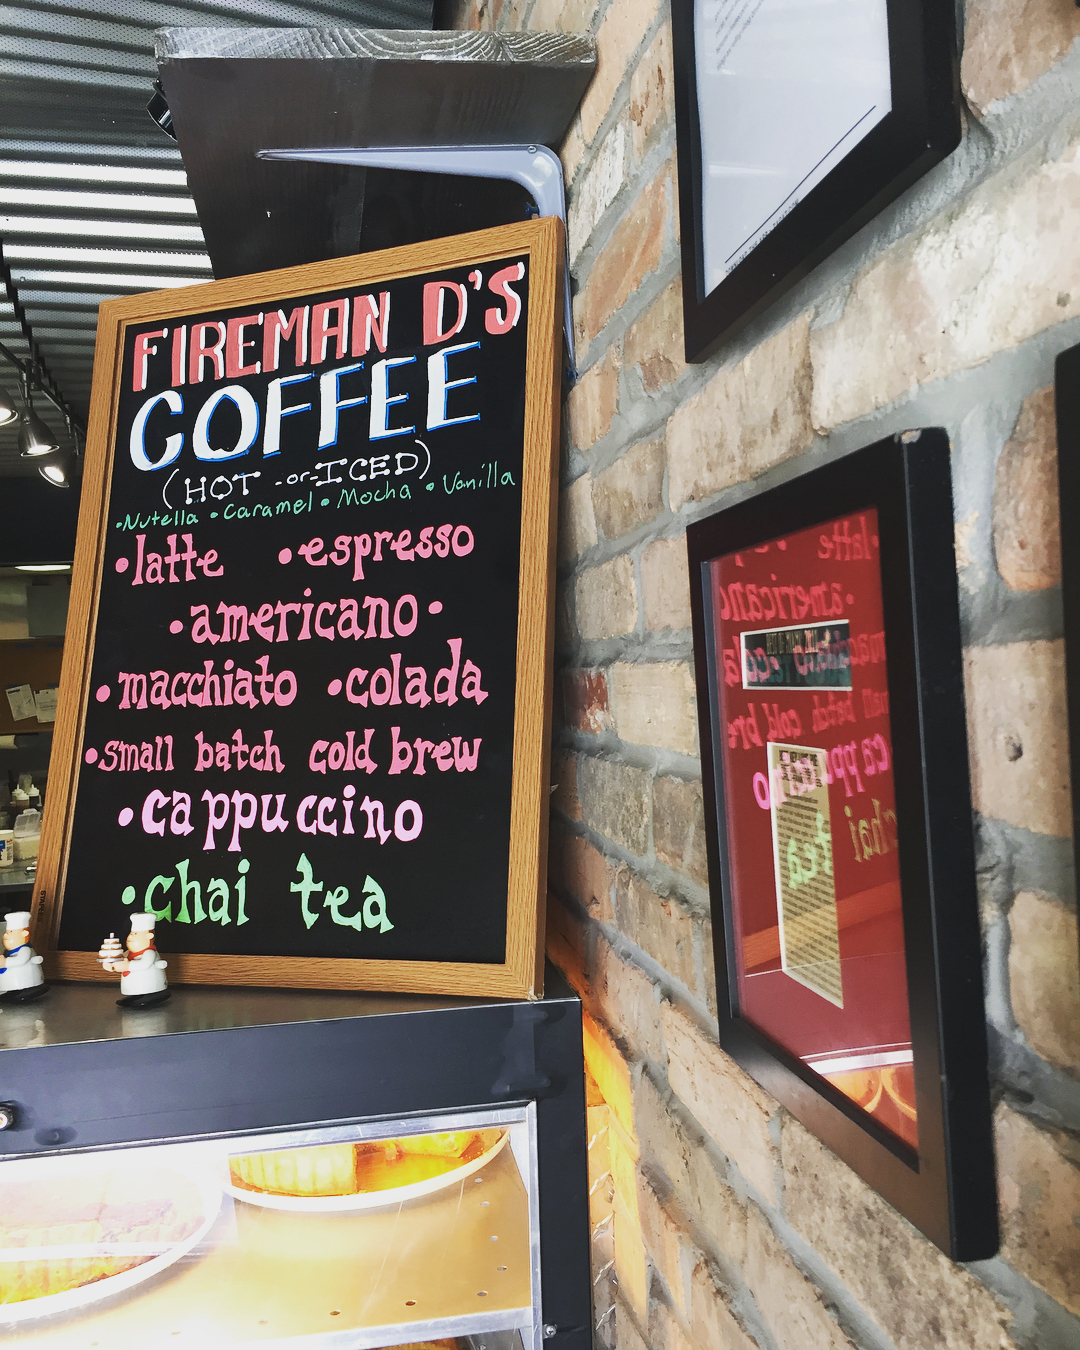 FIREMAN D'S
COFFEE
(HOT -or- ICED)
•Nutella •Caramel •Mocha •Vanilla
•latte •espresso
•americano•
•macchiato •colada
•small batch cold brew
•cappuccino
•chai tea